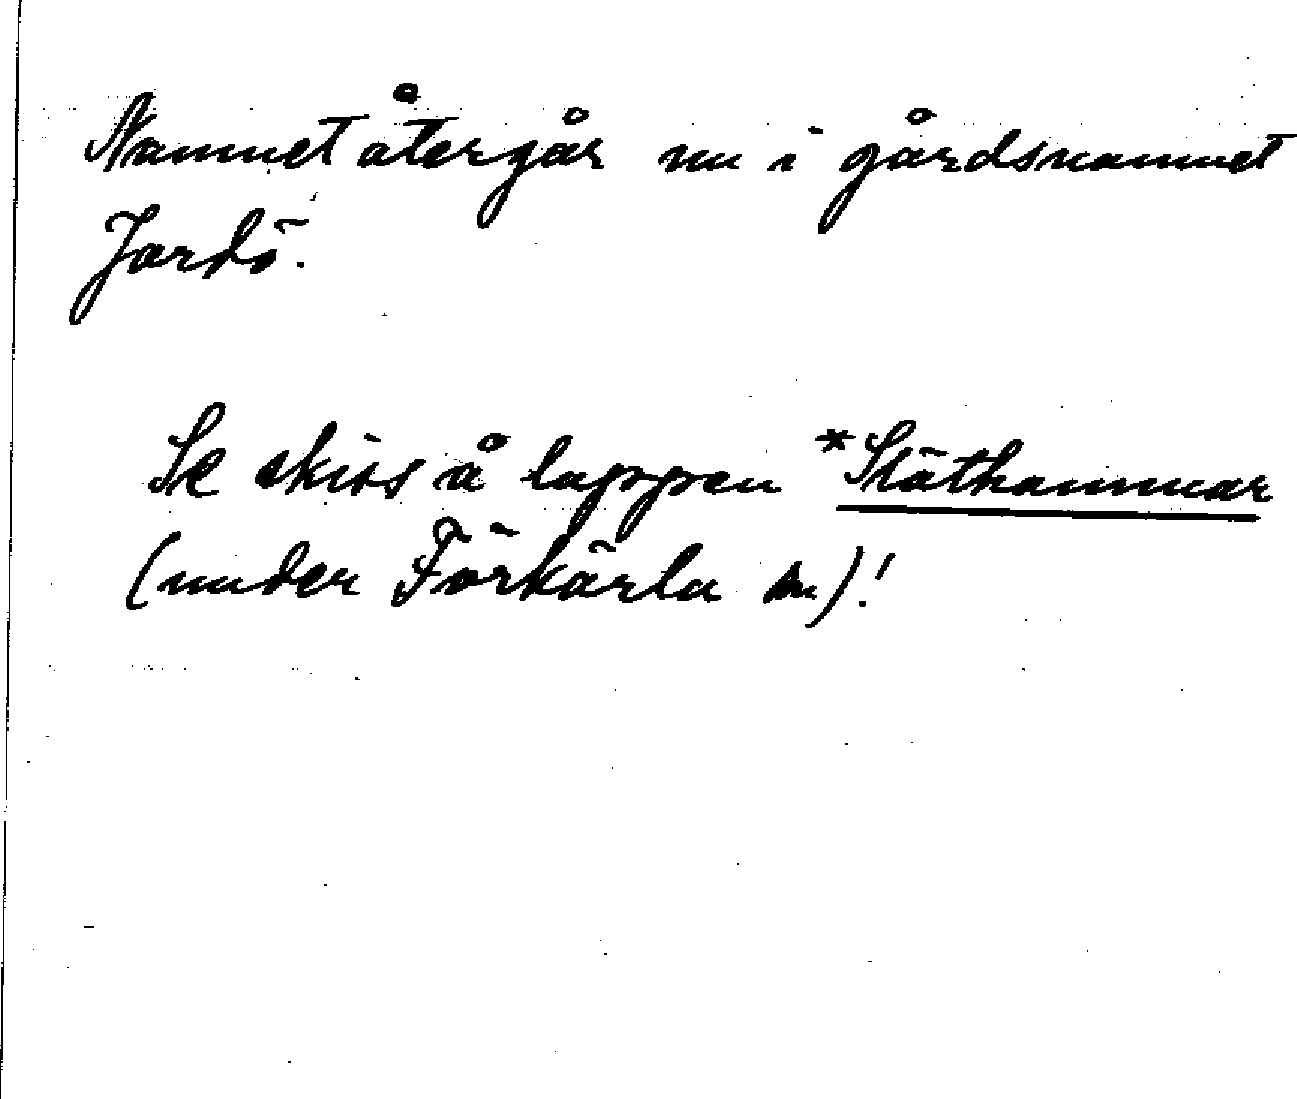 Namnet återgår nu i gårdsnamnet
Jordö.
Se skiss å lappen *Släthammar
(under Förkärla sn)!